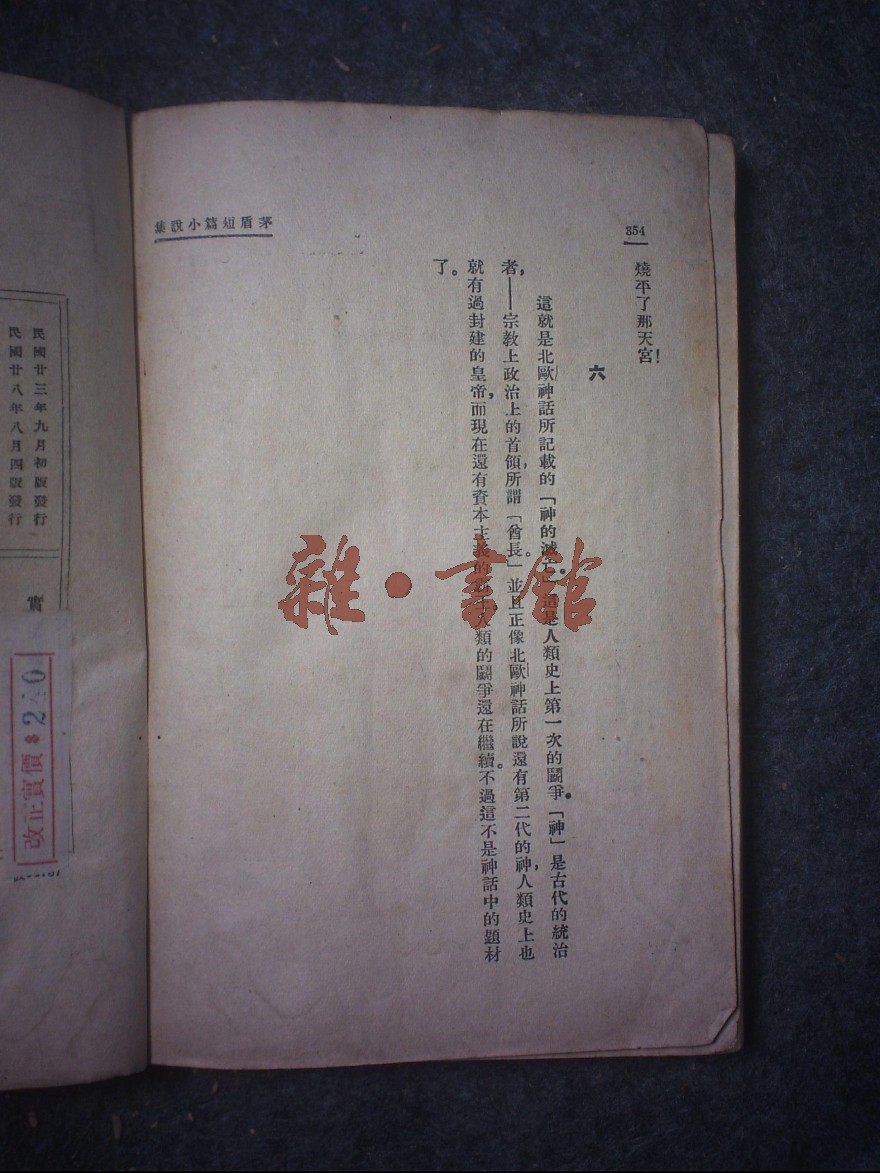 354
茅盾短篇小說集
燒平了那天宮！
六
這就是北歐神話所記載的「神的滅亡」。這是人類史上第一次的鬪爭。「神」是古代的統治
者，——宗敎上政治上的首領，所謂「酋長」。並且正像北歐神話所說還有第二代的神，人類史上也
就有過封建的皇帝，而現在還有資本主義的霸王。人類的鬪爭還在繼續。不過這不是神話中的題材
了。
雜·書館
民國廿三年九月初版發行
民國廿八年八月四版發行
實
改正實價$2.40